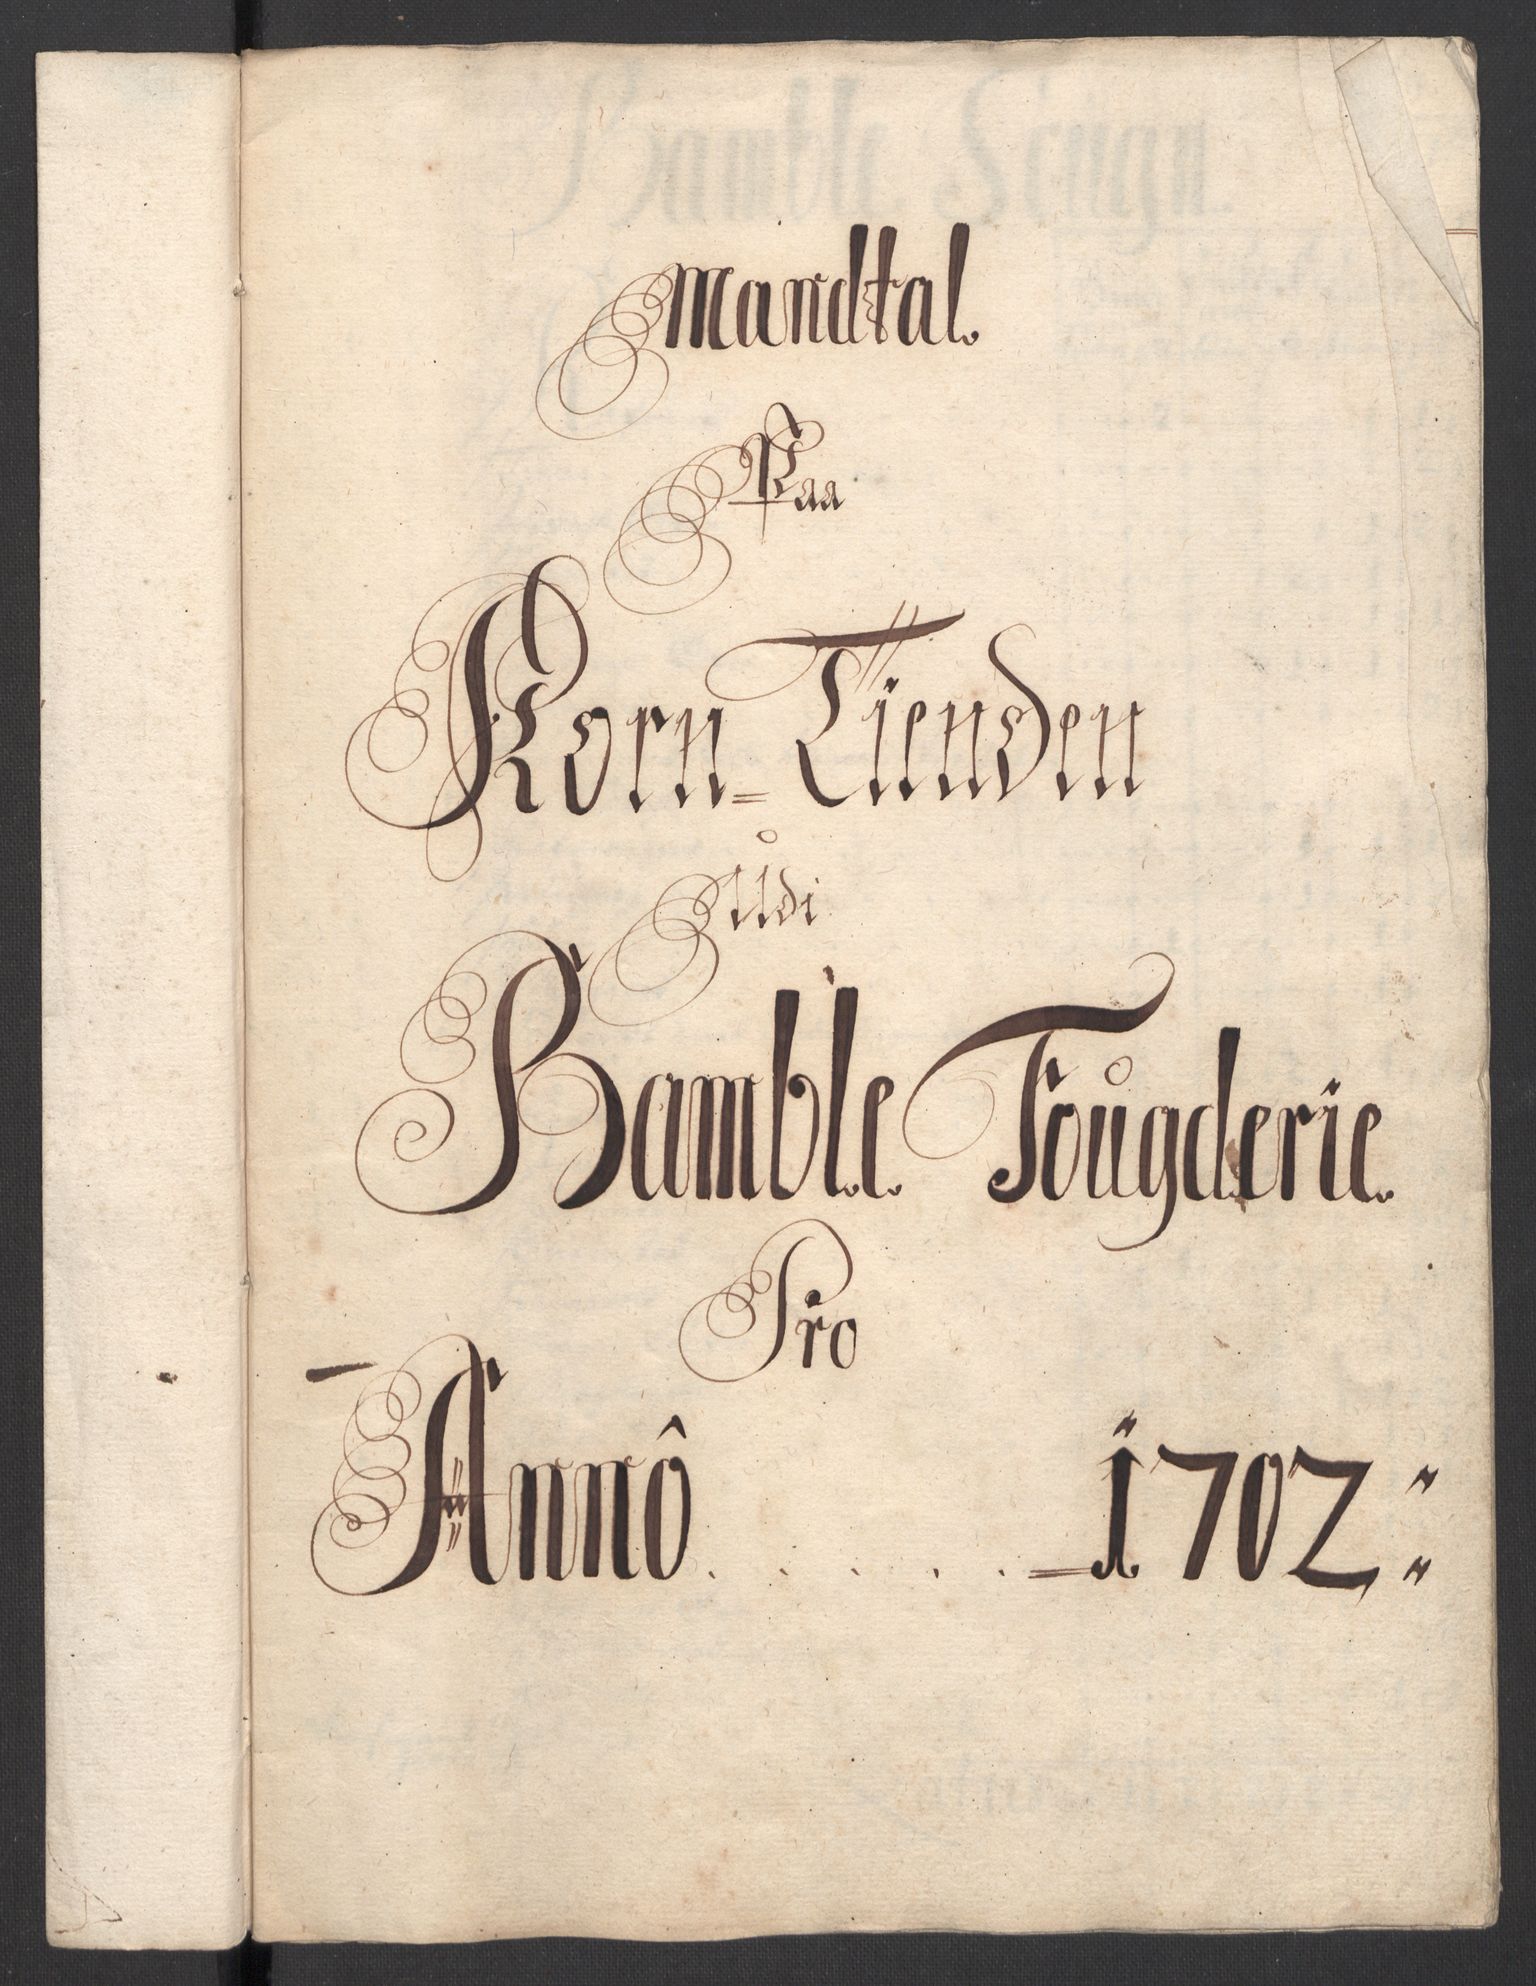 Mandtal.
Paa
Korn=Tienden
Udi
Bamble. Fougderie.
Pro
Annô . . . . . =1702: